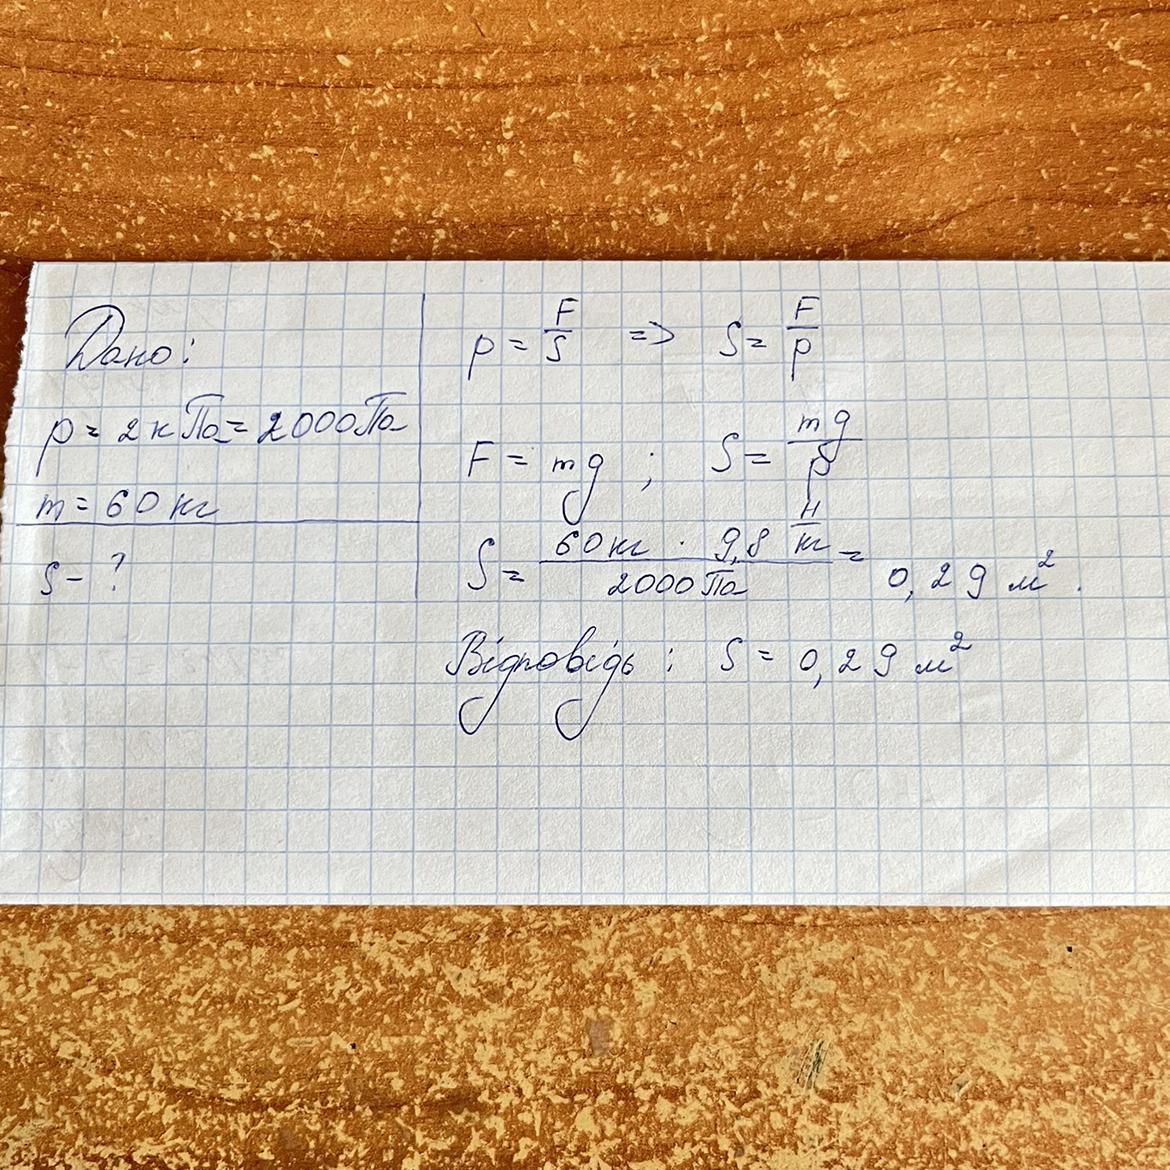 Дано:
p = 2кПа = 2000Па
m = 60 кг
S - ?
p = F/S => S = F/p
F = mg ; S = mg/p
S = 60 кг · 9,8 Н/кг / 2000 Па = 0,29 м².
Відповідь : S = 0,29 м²